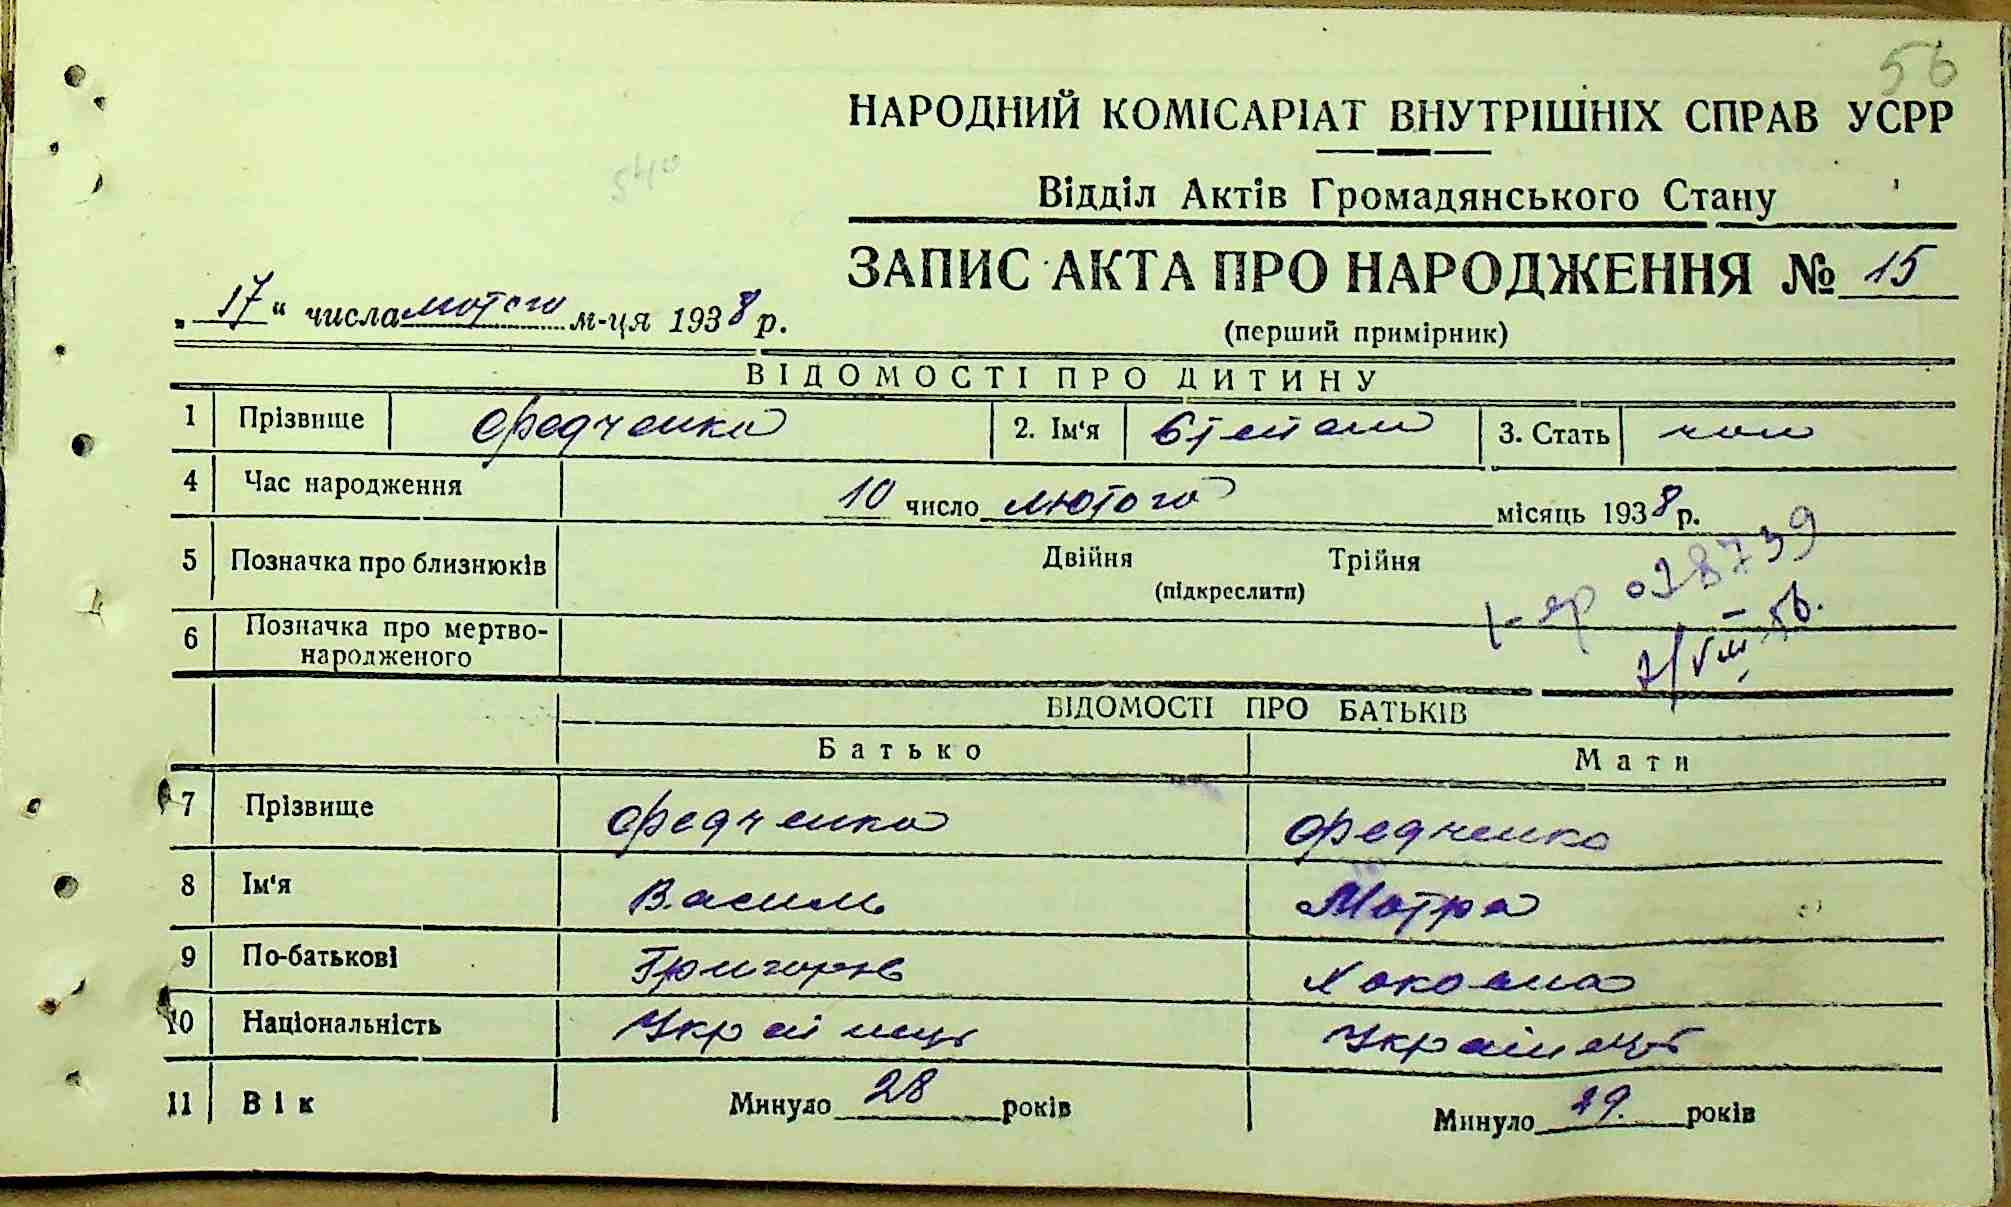 56
НАРОДНИЙ КОМІСАРІАТ ВНУТРІШНІХ СПРАВ УСРР
540
Відділ Актів Громадянського Стану
ЗАПИС АКТА ПРО НАРОДЖЕННЯ № 15
„17“ числа лютого м-ця 1938 р.
(перший примірник)
ВІДОМОСТІ ПРО ДИТИНУ
1 Прізвище Федченко 2. Ім'я Степан 3. Стать чол
4 Час народження 10 число лютого місяць 1938 р.
5 Позначка про близнюків Двійня Трійня
(підкреслити)
028739
6 Позначка про мертво-
народженого
VIII 56.
ВІДОМОСТІ ПРО БАТЬКІВ
Батько Мати
7 Прізвище Федченко Федченко
8 Ім'я Василь Мотря
9 По-батькові Григорів
10 Національність Українець Українець
11 Вік Минуло 28 років Минуло 29. років